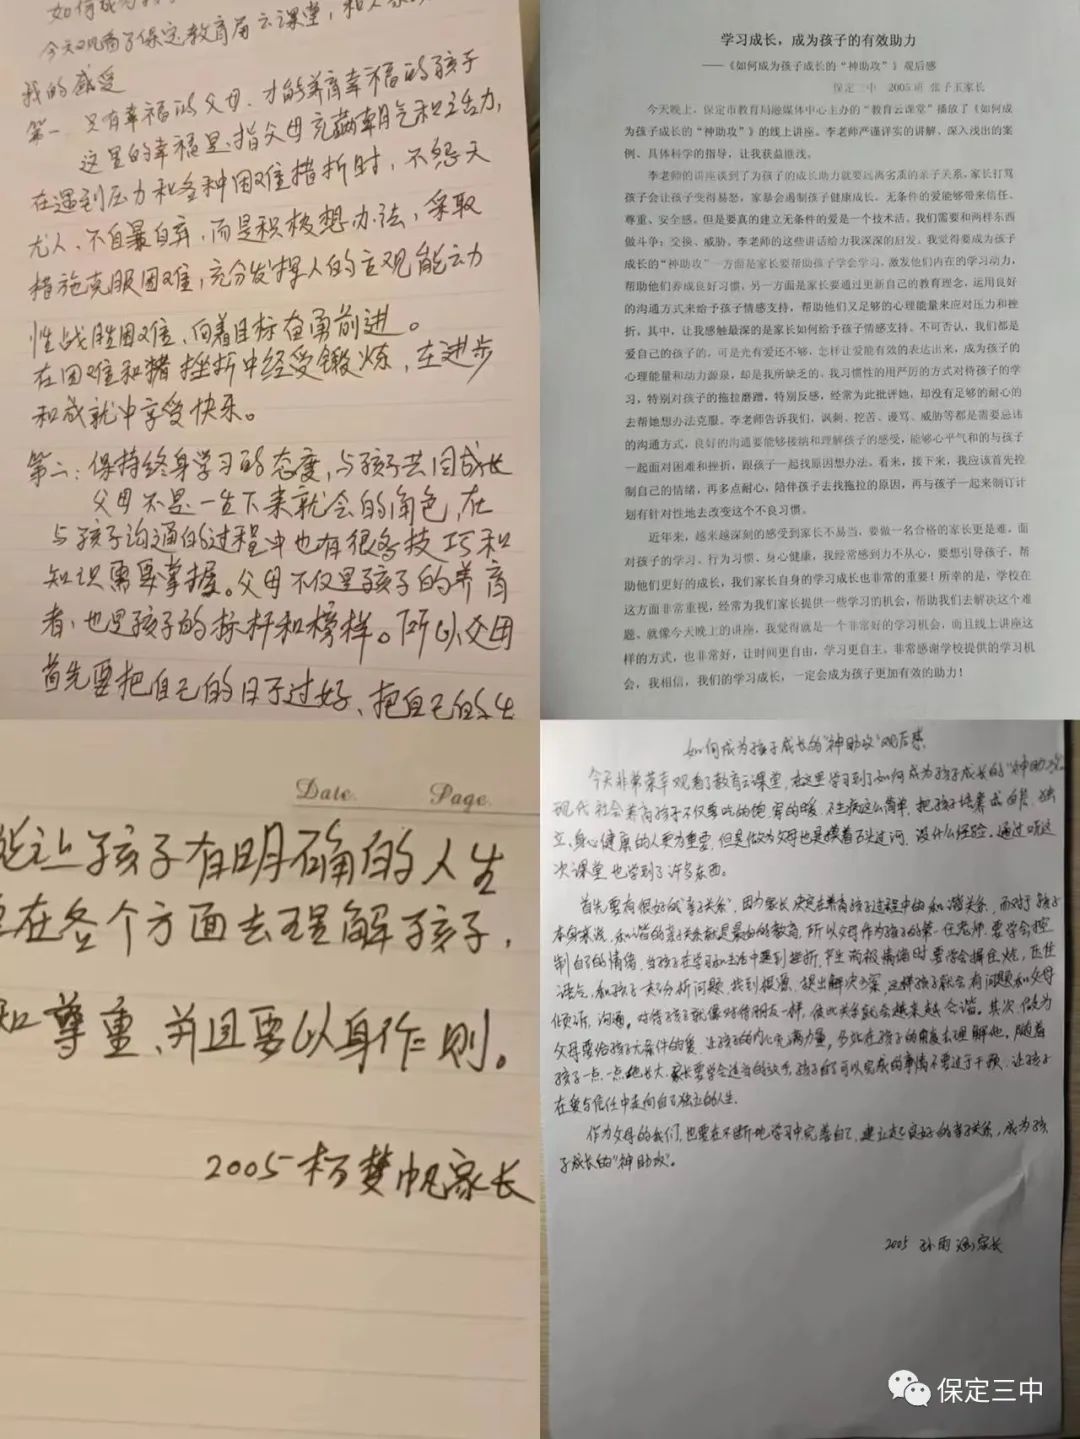 如何成为孩子
今天观看了保定教育局云课堂，和大家
我的感受
第一 只有幸福的父母，才能养育幸福的孩子
这里的幸福是指父母充满朝气和活力，
在遇到压力和各种困难措折时，不怨天
尤人、不自暴自弃，而是积极想办法，采取
措施克服困难，充分发挥人的主观能动
性战胜困难、向着目标奋勇前进。
在困难和挫折中经受锻炼，在进步
和成就中享受快乐。
第二：保持终身学习的态度，与孩子共同成长
父母不是一生下来就会的角色，在
与孩子沟通的过程中也有很多技巧和
知识需要掌握。父母不仅是孩子的养育
者，也是孩子的标杆和榜样。所以父母
首先要把自己的日子过好、把自己的生
学习成长，成为孩子的有效助力
——《如何成为孩子成长的“神助攻”》观后感
保定三中 2005班 张子玉家长
今天晚上，保定市教育局融媒体中心主办的“教育云课堂”播放了《如何成
为孩子成长的“神助攻”》的线上讲座。李老师严谨详实的讲解、深入浅出的案
例、具体科学的指导，让我获益匪浅。
李老师的讲座谈到了为孩子的成长助力就要远离劣质的亲子关系，家长打骂
孩子会让孩子变得易怒，家暴会遏制孩子健康成长。无条件的爱能够带来信任、
尊重、安全感。但是要真的建立无条件的爱是一个技术活，我们需要和两样东西
做斗争：交换、威胁。李老师的这些讲话给力我深深的启发。我觉得要成为孩子
成长的“神助攻”一方面是家长要帮助孩子学会学习，激发他们内在的学习动力，
帮助他们养成良好习惯，另一方面是家长要通过更新自己的教育理念，运用良好
的沟通方式来给予孩子情感支持，帮助他们又足够的心理能量来应对压力和挫
折。其中，让我感触最深的是家长如何给予孩子情感支持。不可否认，我们都是
爱自己的孩子的，可是光有爱还不够，怎样让爱能有效的表达出来，成为孩子的
心理能量和动力源泉，却是我所缺乏的。我习惯性的用严厉的方式对待孩子的学
习，特别对孩子的拖拉磨蹭，特别反感，经常为此批评她，却没有足够的耐心的
去帮她想办法克服。李老师告诉我们，讽刺、挖苦、谩骂、威胁等都是需要忌讳
的沟通方式，良好的沟通要能够接纳和理解孩子的感受，能够心平气和的与孩子
一起面对困难和挫折，跟孩子一起找原因想办法。看来，接下来，我应该首先控
制自己的情绪，再多点耐心，陪伴孩子去找拖拉的原因，再与孩子一起来制订计
划有针对性地去改变这个不良习惯。
近年来，越来越深刻的感受到家长不易当，要做一名合格的家长更是难，面
对孩子的学习、行为习惯、身心健康，我经常感到力不从心，要想引导孩子，帮
助他们更好的成长，我们家长自身的学习成长也非常的重要！所幸的是，学校在
这方面非常重视，经常为我们家长提供一些学习的机会，帮助我们去解决这个难
题。就像今天晚上的讲座，我觉得就是一个非常好的学习机会，而且线上讲座这
样的方式，也非常好，让时间更自由，学习更自主。非常感谢学校提供的学习机
会，我相信，我们的学习成长，一定会成为孩子更加有效的助力！
Date. Page.
能让孩子有明确的人生
在各个方面去理解孩子，
知尊重，并且要以身作则。
2005 杨梦帆家长
如何成为孩子成长的“神助攻”观后感
今天非常荣幸观看了教育云课堂，在这里学习到了如何成为孩子成长的“神助攻”
现代社会养育孩子不仅是吃的饱，穿的暖，不生病这么简单，把孩子培养成自信、独
立、身心健康的人更为重要，但是做为父母也是摸着石头过河，没什么经验。通过听这
次课堂也学到了许多东西。
首先要有很好的“亲子关系”，因为家长决定在养育孩子过程中的和谐关系，而对于孩子
本身来说，和谐的亲子关系就是最好的教育，所以父母作为孩子的第一任老师，要学会控
制自己的情绪，当孩子在学习和生活中遇到挫折，产生消极情绪时要学会摁住火，压住
语气，和孩子一起分析问题，找到根源，提出解决方案，这样孩子就会有问题和父母
倾诉，沟通，对待孩子就像对待朋友一样，彼此关系就会越来越合谐。其次，做为
父母要给孩子无条件的爱，让孩子的内心充满力量，多站在孩子的角度去理解他。随着
孩子一点一点地长大，家长要学会适当的放手，孩子自己可以完成的事情不要过于干预，让孩子
在爱与信任中走向自己独立的人生。
作为父母的我们，也要在不断地学习中完善自己，建立起良好的亲子关系，成为孩
子成长的“神助攻”。
2005 孙雨涵家长
保定三中